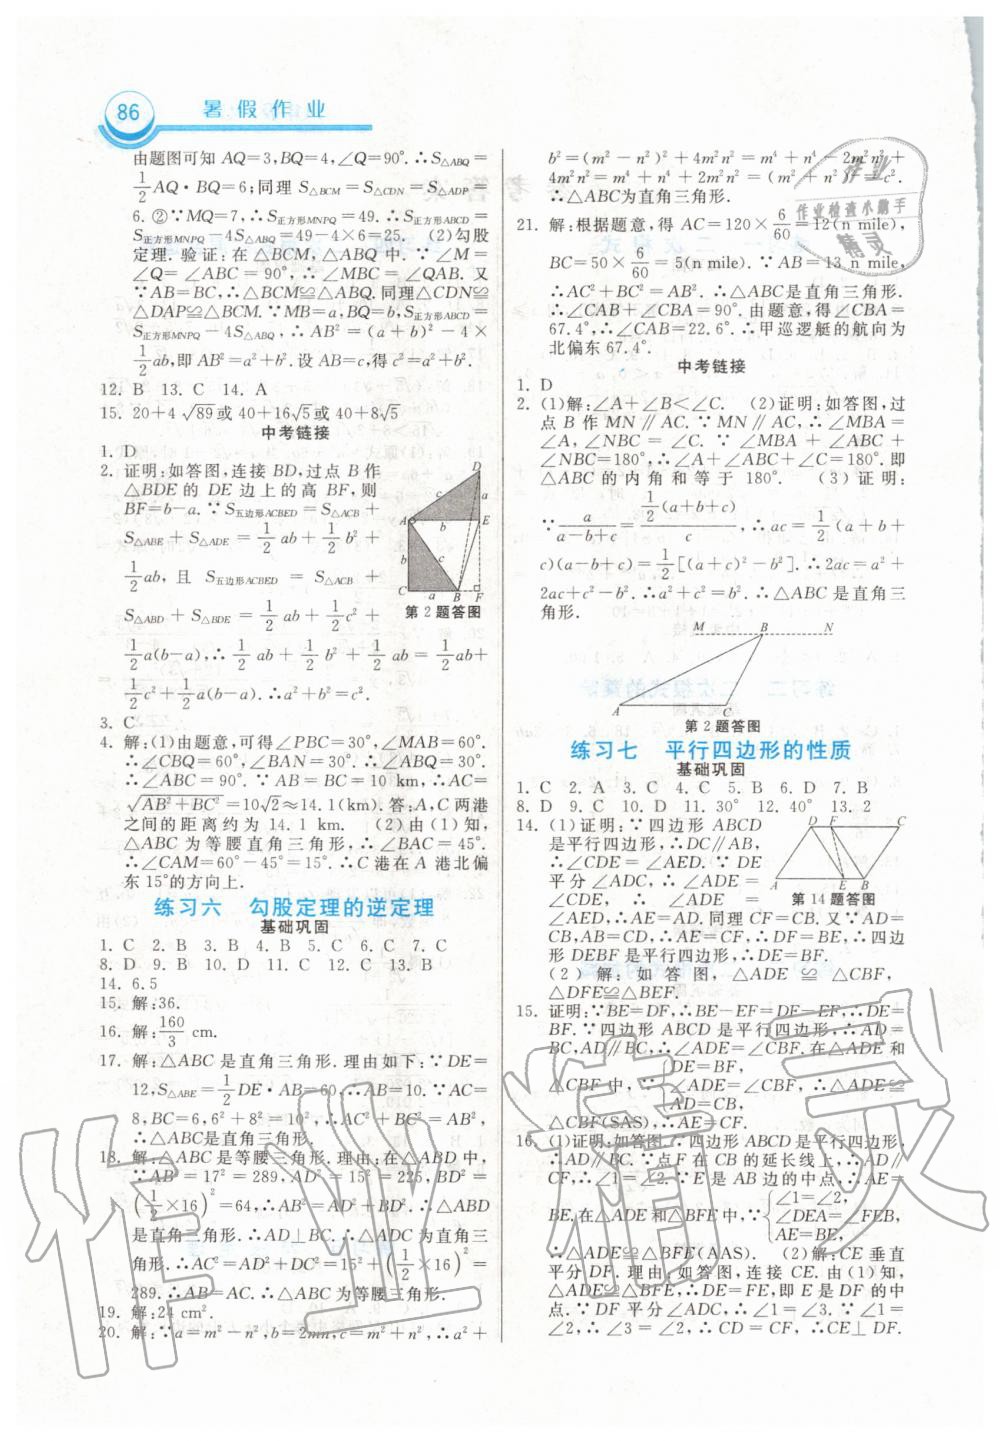 86
暑假作业
由题图可知 AQ=3,BQ=4,∠Q=90°.∴S△ABQ=
1/2 AQ·BQ=6;同理 S△BCM=S△CDN=S△ADP=
6. ②∵MQ=7,∴S正方形MNPQ=49.∴S正方形ABCD=
S正方形MNPQ-4S△ABQ=49-4×6=25. (2)勾股
定理. 验证:在△BCM,△ABQ 中. ∵∠M=
∠Q=∠ABC=90°,∴∠MBC=∠QAB. 又
∵AB=BC,∴△BCM≌△ABQ. 同理△CDN≌
△DAP≌△BCM. ∵MB=a,BQ=b,S正方形ABCD=
S正方形MNPQ-4S△ABQ,∴AB²=(a+b)²-4×
1/2 ab,即 AB²=a²+b². 设 AB=c,得 c²=a²+b².
12. B 13. C 14. A
15. 20+4√89或 40+16√5或 40+8√5
中考链接
1. D
2. 证明:如答图,连接 BD,过点 B 作
△BDE 的 DE 边上的高 BF,则
BF=b-a. ∵S五边形ACBED=S△ACB+
S△ABE+S△ADE=1/2 ab+1/2 b²+
1/2 ab, 且 S五边形ACBED=S△ACB+
S△ABD+S△BDE=1/2 ab+1/2 c²+
1/2 a(b-a),∴1/2 ab+1/2 b²+1/2 ab=1/2 ab+
1/2 c²+1/2 a(b-a). ∴a²+b²=c².
D
c
a
A
b
E
b
c
C
a
B
F
第 2 题答图
3. C
4. 解:(1)由题意,可得∠PBC=30°,∠MAB=60°.
∴∠CBQ=60°,∠BAN=30°. ∴∠ABQ=30°.
∴∠ABC=90°. ∵AB=BC=10 km,∴AC=
√AB²+BC²=10√2≈14.1(km). 答:A,C 两港
之间的距离约为 14.1 km. (2)由(1)知,
△ABC 为等腰直角三角形,∴∠BAC=45°.
∴∠CAM=60°-45°=15°. ∴C 港在 A 港北偏
东 15°的方向上.
练习六 勾股定理的逆定理
基础巩固
1. C 2. B 3. B 4. B 5. C 6. C 7. C
8. D 9. B 10. D 11. C 12. C 13. B
14. 6.5
15. 解:36.
16. 解:160/3 cm.
17. 解:△ABC 是直角三角形. 理由如下:∵DE=
12,S△ABE=1/2 DE·AB=60,∴AB=10. ∵AC=
8,BC=6,6²+8²=10²,∴AC²+BC²=AB²,
∴△ABC是直角三角形.
18. 解:△ABC 是等腰三角形. 理由:在△ABD 中,
∵AB²=17²=289,AD²=15²=225,BD²=
(1/2×16)²=64,∴AB²=AD²+BD². ∴△ABD
是直角三角形. ∴AD⊥BC. ∴△ADC 为直角三
角形. ∴AC²=AD²+DC²=15²+(1/2×16)²=
289. ∴AB=AC. ∴△ABC 为等腰三角形.
19. 解:24 cm².
20. 解:∵a=m²-n²,b=2mn,c=m²+n²,∴a²+
b²=(m²-n²)²+4m²n²=m⁴+n⁴-2m²n²+
4m²n²=m⁴+n⁴+2m²n²=(m²+n²)²=c².
∴△ABC为直角三角形.
21. 解:根据题意,得 AC=120×6/60=12(n mile),
BC=50×6/60=5(n mile). ∵AB=13 n mile,
∴AC²+BC²=AB². ∴△ABC是直角三角形.
∴∠CAB+∠CBA=90°. 由题意,得∠CBA=
67.4°,∴∠CAB=22.6°. ∴甲巡逻艇的航向为
北偏东 67.4°.
中考链接
1. D
2. (1)解:∠A+∠B<∠C. (2)证明:如答图,过
点 B 作 MN∥AC. ∵MN∥AC,∴∠MBA=
∠A,∠NBC=∠C. ∵∠MBA+∠ABC+
∠NBC=180°,∴∠A+∠ABC+∠C=180°. 即
△ABC 的内角和等于 180°. (3)证明:
∵a/(a-b+c)=1/2(a+b+c)/c,∴ac=1/2(a+b+
c)(a-b+c)=1/2[(a+c)²-b²]. ∴2ac=a²+
2ac+c²-b². ∴a²+c²=b². ∴△ABC 是直角三
角形.
M
B
N
A
C
第 2 题答图
练习七 平行四边形的性质
基础巩固
1. C 2. A 3. C 4. C 5. B 6. D 7. B
8. D 9. C 10. D 11. 30° 12. 40° 13. 2
14. (1)证明:∵四边形 ABCD
是平行四边形,∴DC∥AB,
∴∠CDE=∠AED. ∵DE
平分∠ADC,∴∠ADE=
∠CDE, ∴∠ADE=
∠AED,∴AE=AD. 同理 CF=CB. 又∵AD=
CB,AB=CD,∴AE=CF,∴DF=BE,∴四边
形 DEBF 是平行四边形.
(2)解:如答图,△ADE≌△CBF,
△DFE≌△BEF.
D
F
C
A
E
B
第 14 题答图
15. 证明:∵BE=DF,∴BE-EF=DF-EF,∴DE=
BF. ∵四边形 ABCD 是平行四边形,∴AD=
BC,AD∥BC,∴∠ADE=∠CBF. 在△ADE 和
△CBF 中,∵{DE=BF, ∠ADE=∠CBF, AD=CB, ∴△ADE≌
△CBF(SAS),∴AE=CF.
16. (1)证明:如答图. ∵四边形 ABCD是平行四边形,
∴AD∥BC. ∵点 F 在 CB 的延长线上,∴AD∥
CF,∴∠1=∠2. ∵E 是 AB 的中点,∴AE=
BE. 在△ADE 和△BFE 中,∵{∠1=∠2, ∠DEA=∠FEB, AE=BE,
∴△ADE≌△BFE(AAS). (2)解:CE 垂直
平分 DF. 理由:如答图,连接 CE. 由(1)知,
△ADE≌△BFE,∴DE=FE,即 E 是 DF 的中
点,∵DF 平分∠ADC,∴∠1=∠3. ∵∠1=
∠2,∴∠3=∠2,∴CD=CF,∴CE⊥DF.
作业
作业检查小助手
精灵
作业精灵